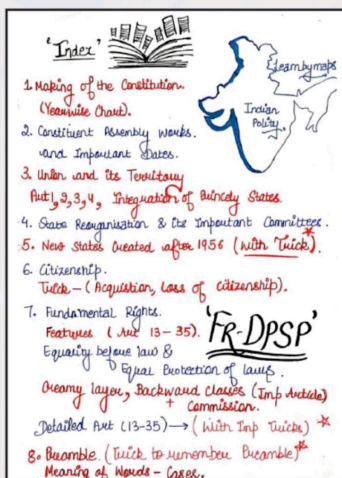 'Index'
Learnbymaps
Indian
Polity
1. Making of the Constitution.
(Yearwise Chart).
2. Constituent Assembly Works.
and Important Dates.
3. Union and its Territory
Art 1, 2, 3, 4, Integration of Princely States.
4. State Reorganisation & its Important Committees.
5. New States Created after 1956 (with Trick).
6. Citizenship.
Trick - (Acquistion, Loss of citizenship).
7. Fundamental Rights.
Features (Art 13-35).
'FR-DPSP'
Equality before law &
Equal Protection of laws.
Creamy layer, Backward classes (Imp Article)
+ Commission.
Detailed Art (13-35) → (With Imp Tricks)
8. Preamble. (Trick to remember Preamble)
Meaning of Words - Cases.